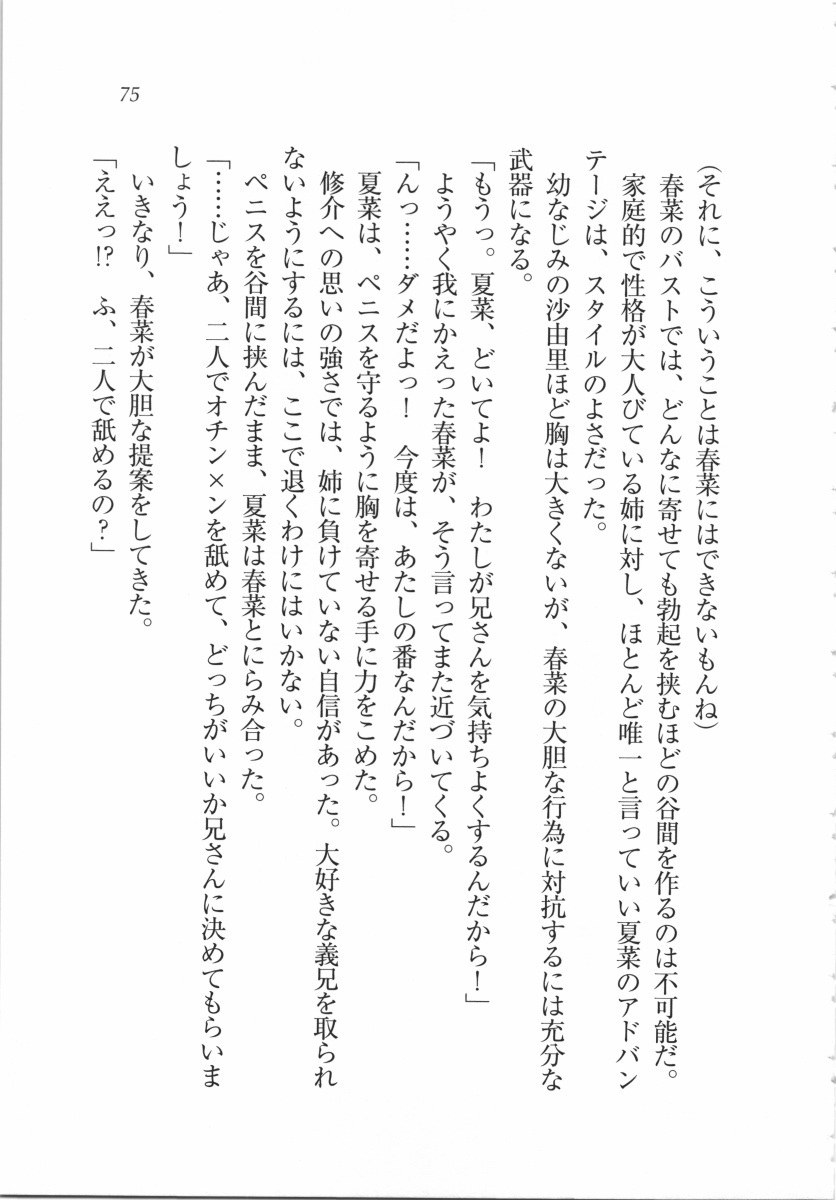 75
(それに、こういうことは春菜にはできないもんね)
春菜のバストでは、どんなに寄せても勃起を挟むほどの谷間を作るのは不可能だ。
家庭的で性格が大人びている姉に対し、ほとんど唯一と言っていい夏菜のアドバン
テージは、スタイルのよさだった。
幼なじみの沙由里ほど胸は大きくないが、春菜の大胆な行為に対抗するには充分な
武器になる。
「もうっ。夏菜、どいてよ! わたしが兄さんを気持ちよくするんだから!」
ようやく我にかえった春菜が、そう言ってまた近づいてくる。
「んっ……ダメだよっ! 今度は、あたしの番なんだから!」
夏菜は、ペニスを守るように胸を寄せる手に力をこめた。
修介への思いの強さでは、姉に負けていない自信があった。大好きな義兄を取られ
ないようにするには、ここで退くわけにはいかない。
ペニスを谷間に挟んだまま、夏菜は春菜とにらみ合った。
「……じゃあ、二人でオチン×ンを舐めて、どっちがいいか兄さんに決めてもらいま
しょう!」
いきなり、春菜が大胆な提案をしてきた。
「ええっ!? ふ、二人で舐めるの?」